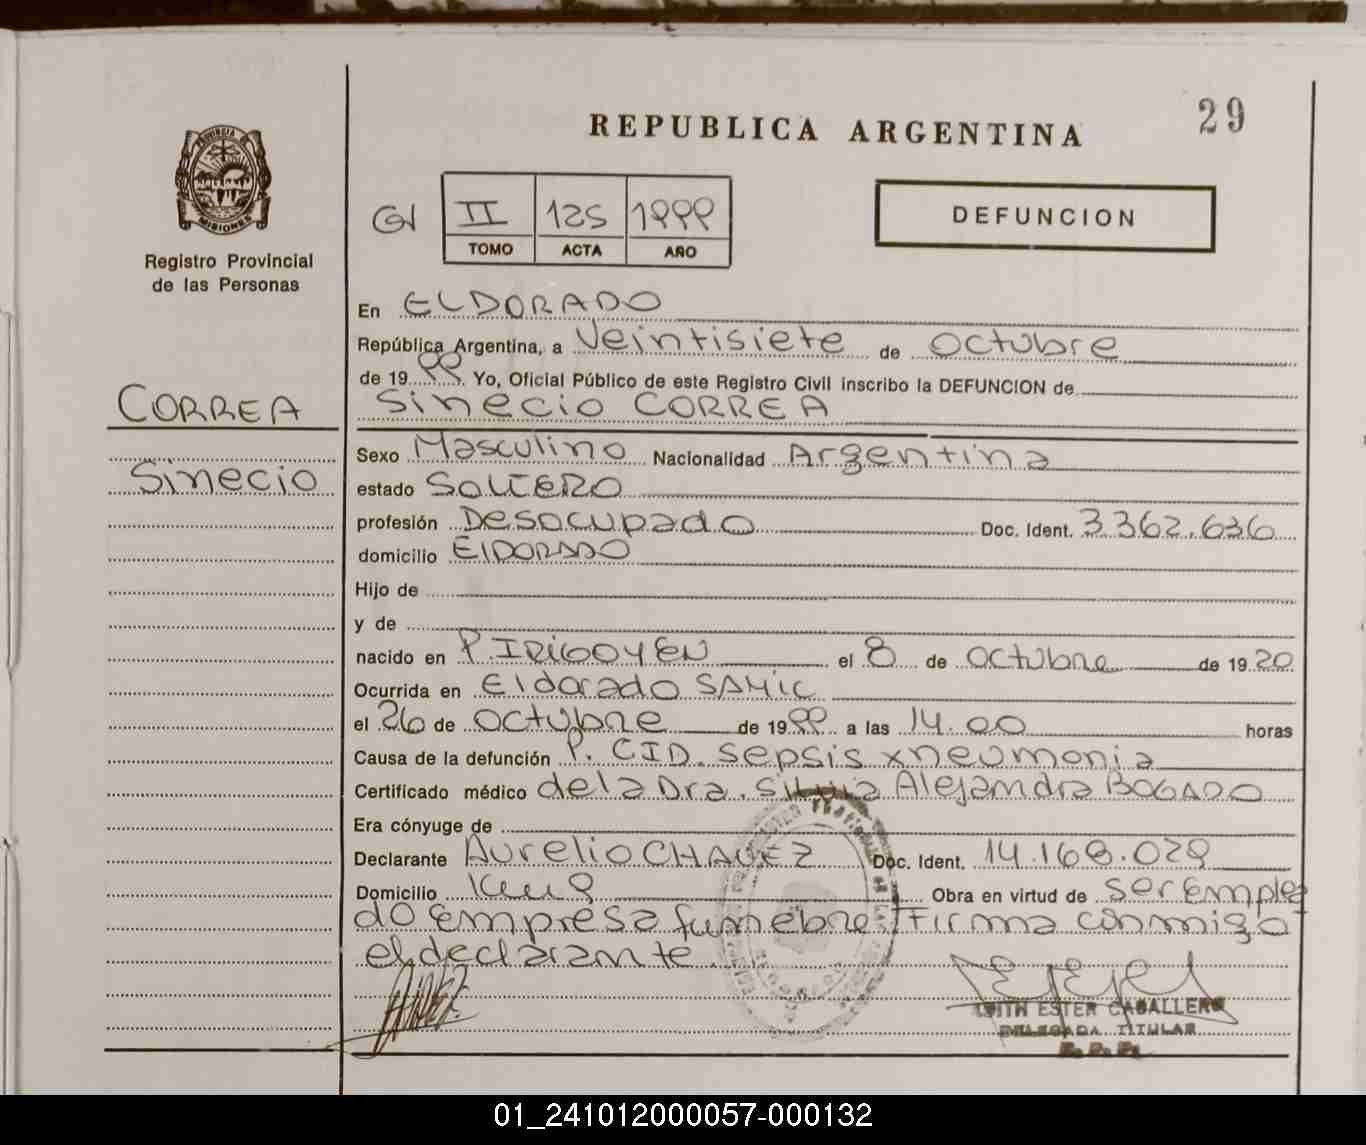 29
REPUBLICA ARGENTINA
PROVINCIA DE
MISIONES
Registro Provincial
de las Personas
II 125 1999
TOMO ACTA AÑO
DEFUNCION
En ELDORADO
República Argentina, a Veintisiete de octubre
de 1999 Yo, Oficial Público de este Registro Civil inscribo la DEFUNCION de
Sinecio CORREA
CORREA
Sinecio
Sexo Masculino Nacionalidad Argentina
estado SOLTERO
profesión Desocupado Doc. Ident. 3.362.636
domicilio ElDORADO
Hijo de
y de
nacido en P. IRIGOYEN el 8 de octubre de 1920
Ocurrida en Eldorado SAMIC
el 26 de octubre de 1999 a las 14.00 horas
Causa de la defunción P. CID. sepsis xneumonia
Certificado médico dela Dra. Silvia Alejandra BOGADO
Era cónyuge de
Declarante Aurelio CHAVEZ Doc. Ident. 14.168.029
Domicilio Km 9 Obra en virtud de ser emplea
do empresa funebre. Firma conmigo
el declarante
EDITH ESTER CABALLERO
DELEGADA TITULAR
R. P. P.
01_241012000057-000132